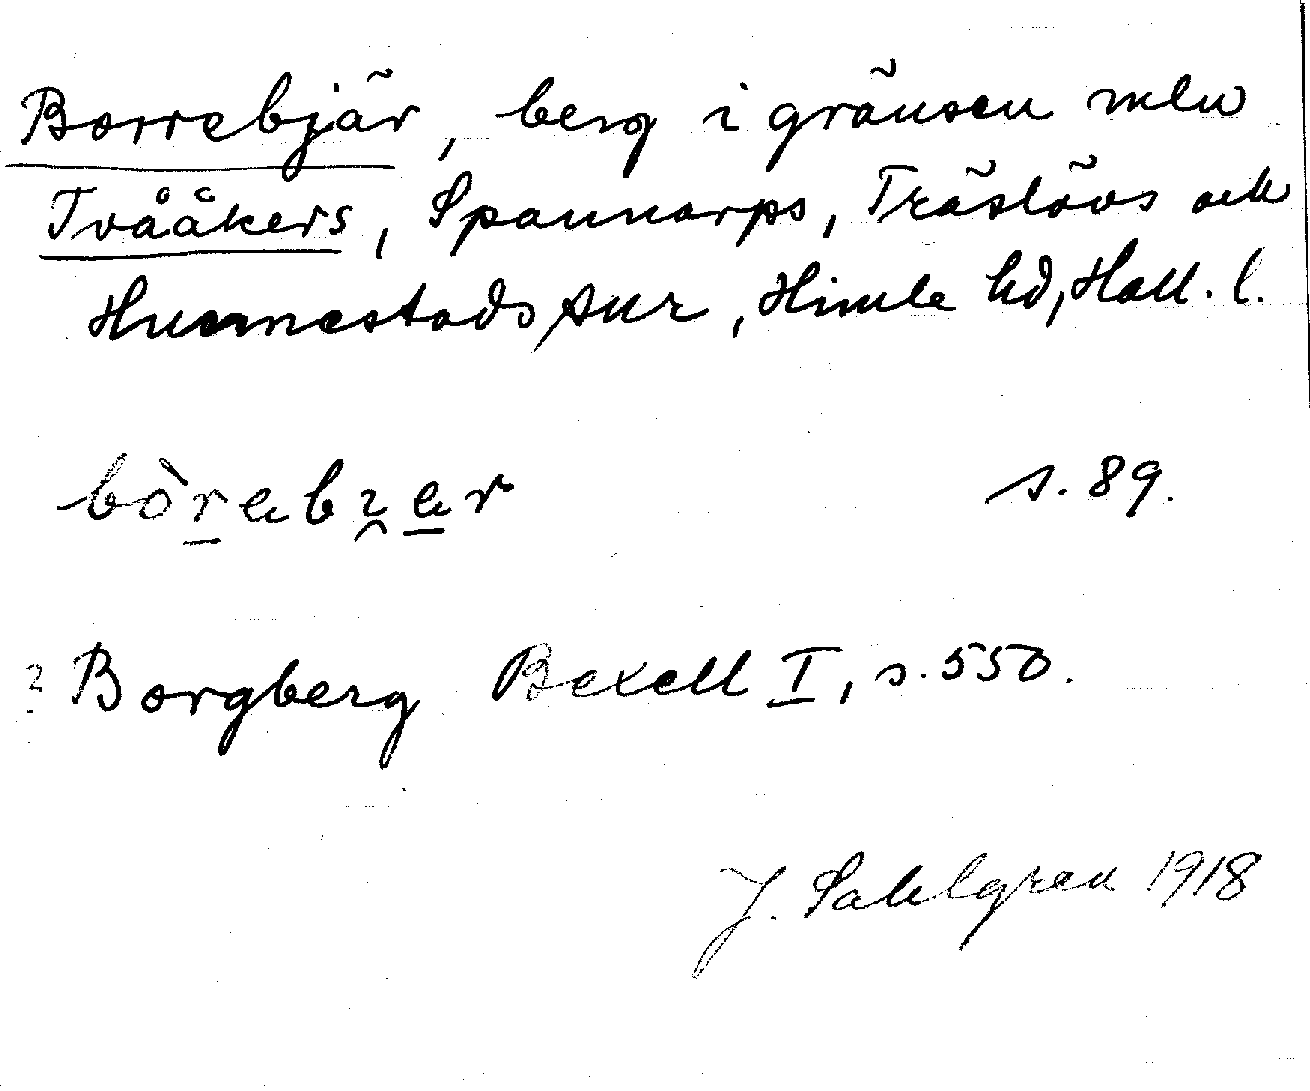 Borrebjär, berg i gränsen mln
Tvååkers, Spannarps, Träslövs och
Hunnestads snr, Himle hd, Hall. l.
s. 89.
? Borgberg Bexell I, s. 550.
J. Sahlgren 1918